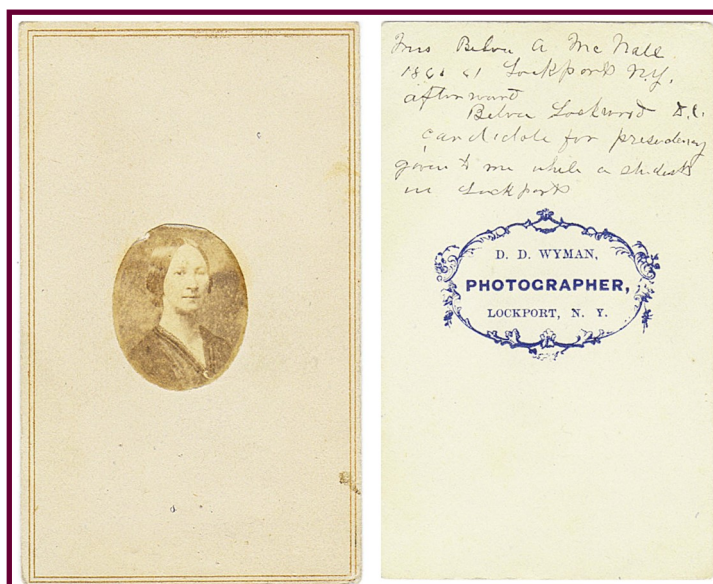 Mrs Belva A McNall
1860 61 Lockport N.Y.
afterward
Belva Lockwood D.C.
candidate for presidency
given to me while a student
in Lockport
D. D. WYMAN,
PHOTOGRAPHER,
LOCKPORT, N. Y.